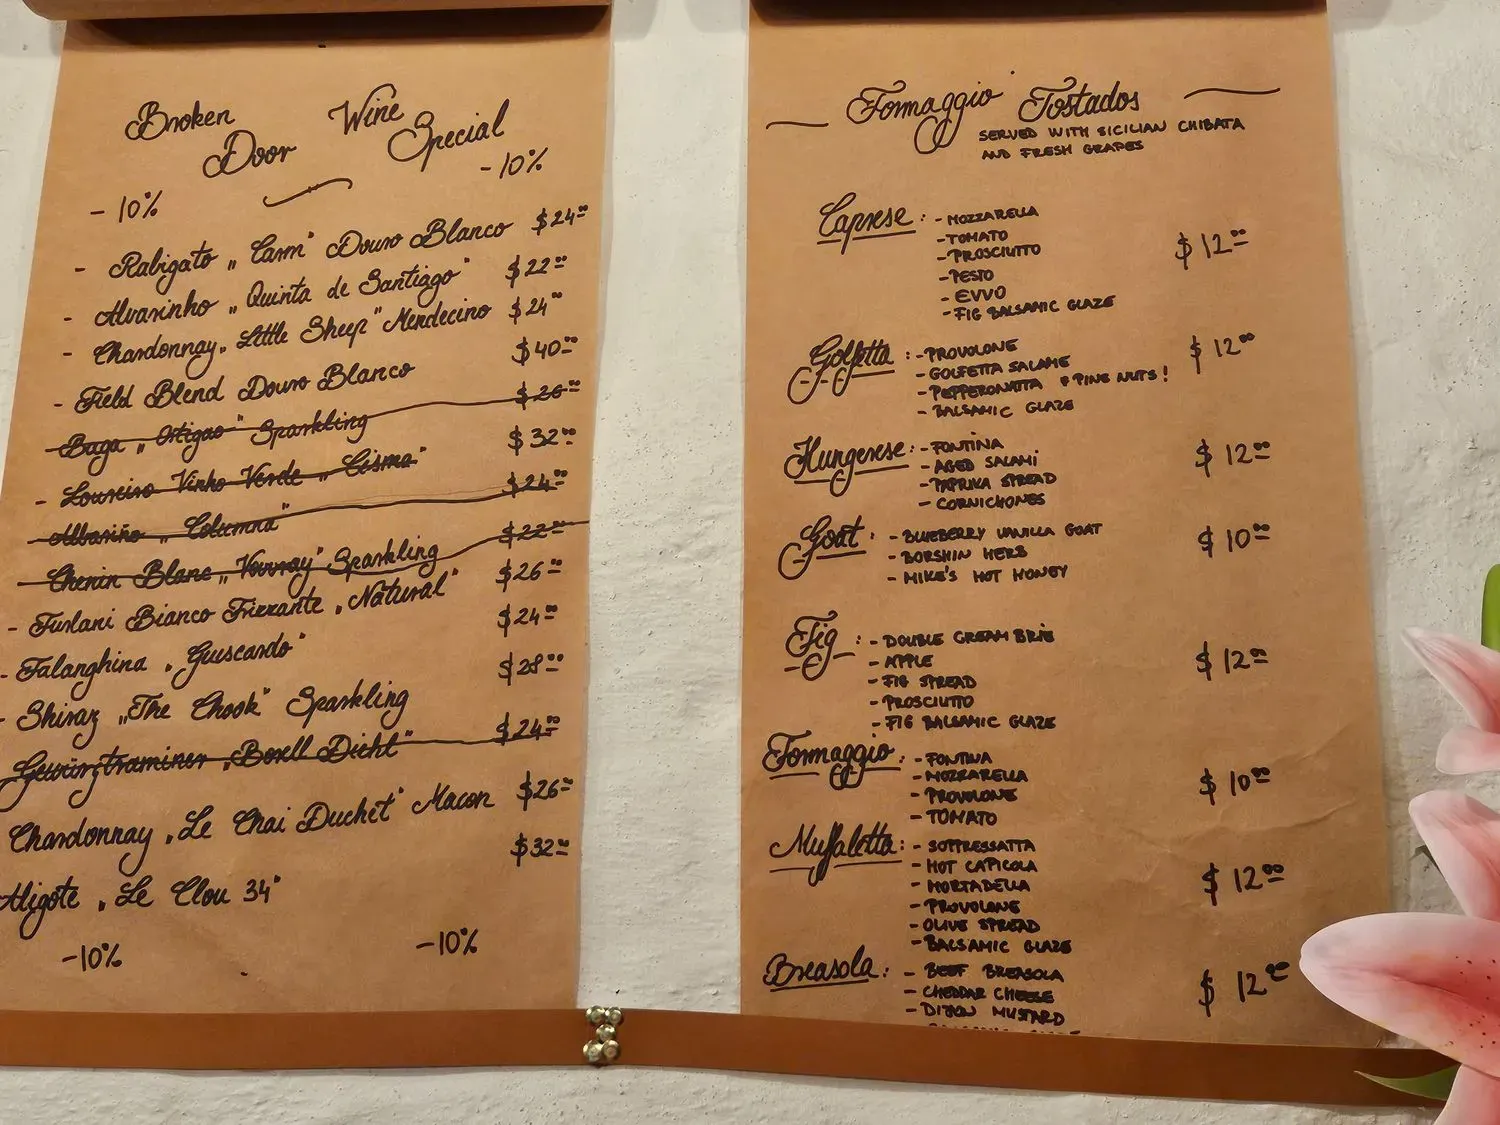 Broken Wine
Door Special
-10% -10%
- Rabigato „Carm" Douro Blanco $24.00
- Alvarinho „Quinta de Santiago" $22.00
- Chardonnay „Little Sheep" Mendecino $24.00
- Field Blend Douro Blanco $40.00
- Baga „Ortigao" Sparkling $26.00
- Loureiro Vinho Verde „Cisma" $32.00
- Albariño „Columna" $24.00
- Chenin Blanc „Vouvray" Sparkling $22.00
- Furlani Bianco Frizzante „Natural" $26.00
- Falanghina „Guiscardo" $24.00
- Shiraz „The Chook" Sparkling $28.00
Gewürztraminer „Boxll Dicht" $24.00
Chardonnay „Le Chai Duchet" Macon $26.00
Aligote „Le Clou 34" $32.00
-10% -10%
Formaggio Tostados
SERVED WITH SICILIAN CHIBATA
AND FRESH GRAPES
Caprese: - MOZZARELLA
- TOMATO $12.00
- PROSCIUTTO
- PESTO
- EVVO
- FIG BALSAMIC GLAZE
Golfetta: - PROVOLONE $12.00
- GOLFETTA SALAME
- PEPPERONATTA "PINE NUTS!
- BALSAMIC GLAZE
Hungerese: - FONTINA $12.00
- AGED SALAMI
- PAPRIKA SPREAD
- CORNICHONES
Goat: - BLUEBERRY VANILLA GOAT $10.00
- BORSHIN HERB
- MIKE'S HOT HONEY
Fig: - DOUBLE CREAM BRIE
- APPLE $12.00
- FIG SPREAD
- PROSCIUTTO
- FIG BALSAMIC GLAZE
Formaggio: - FONTINA
- MOZZARELLA $10.00
- PROVOLONE
- TOMATO
Muffaletta: - SOPPRESSATTA
- HOT CAPICOLA $12.00
- MORTADELLA
- PROVOLONE
- OLIVE SPREAD
- BALSAMIC GLAZE
Breasola: - BEEF BREASOLA $12.00
- CHEDDAR CHEESE
- DIJON MUSTARD